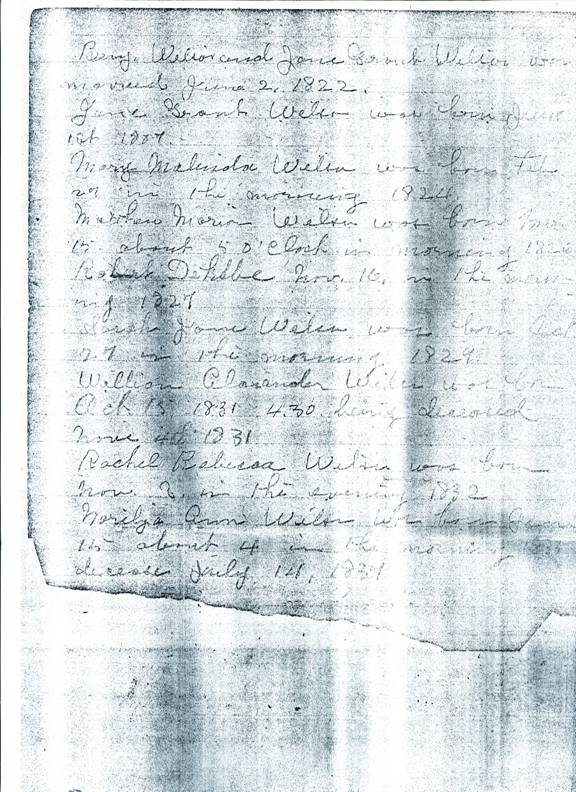 Benj. Welton and Jane Grant Welton was
married June 2, 1822.
Jane Grant Welton was born June
1st 1807.
Mary Malinda Welton was born Feb
27 in the morning 1824
Matthew Maria Welton was born
15 about 5 o'clock in morning 1826
Nov. 16, in the morn
ing 1827
Sarah Jane Welton was born Oct
27 in the morning 1829.
William Alaxander Welton was born
Oct 15 1831 4.30 being deceased
Nove 4th 1831
Rachel Rebecca Welton was born
Nov 3, in the evening 1832
Ann Welton was born
15 about 4 in the morning
decease July 14, 1834